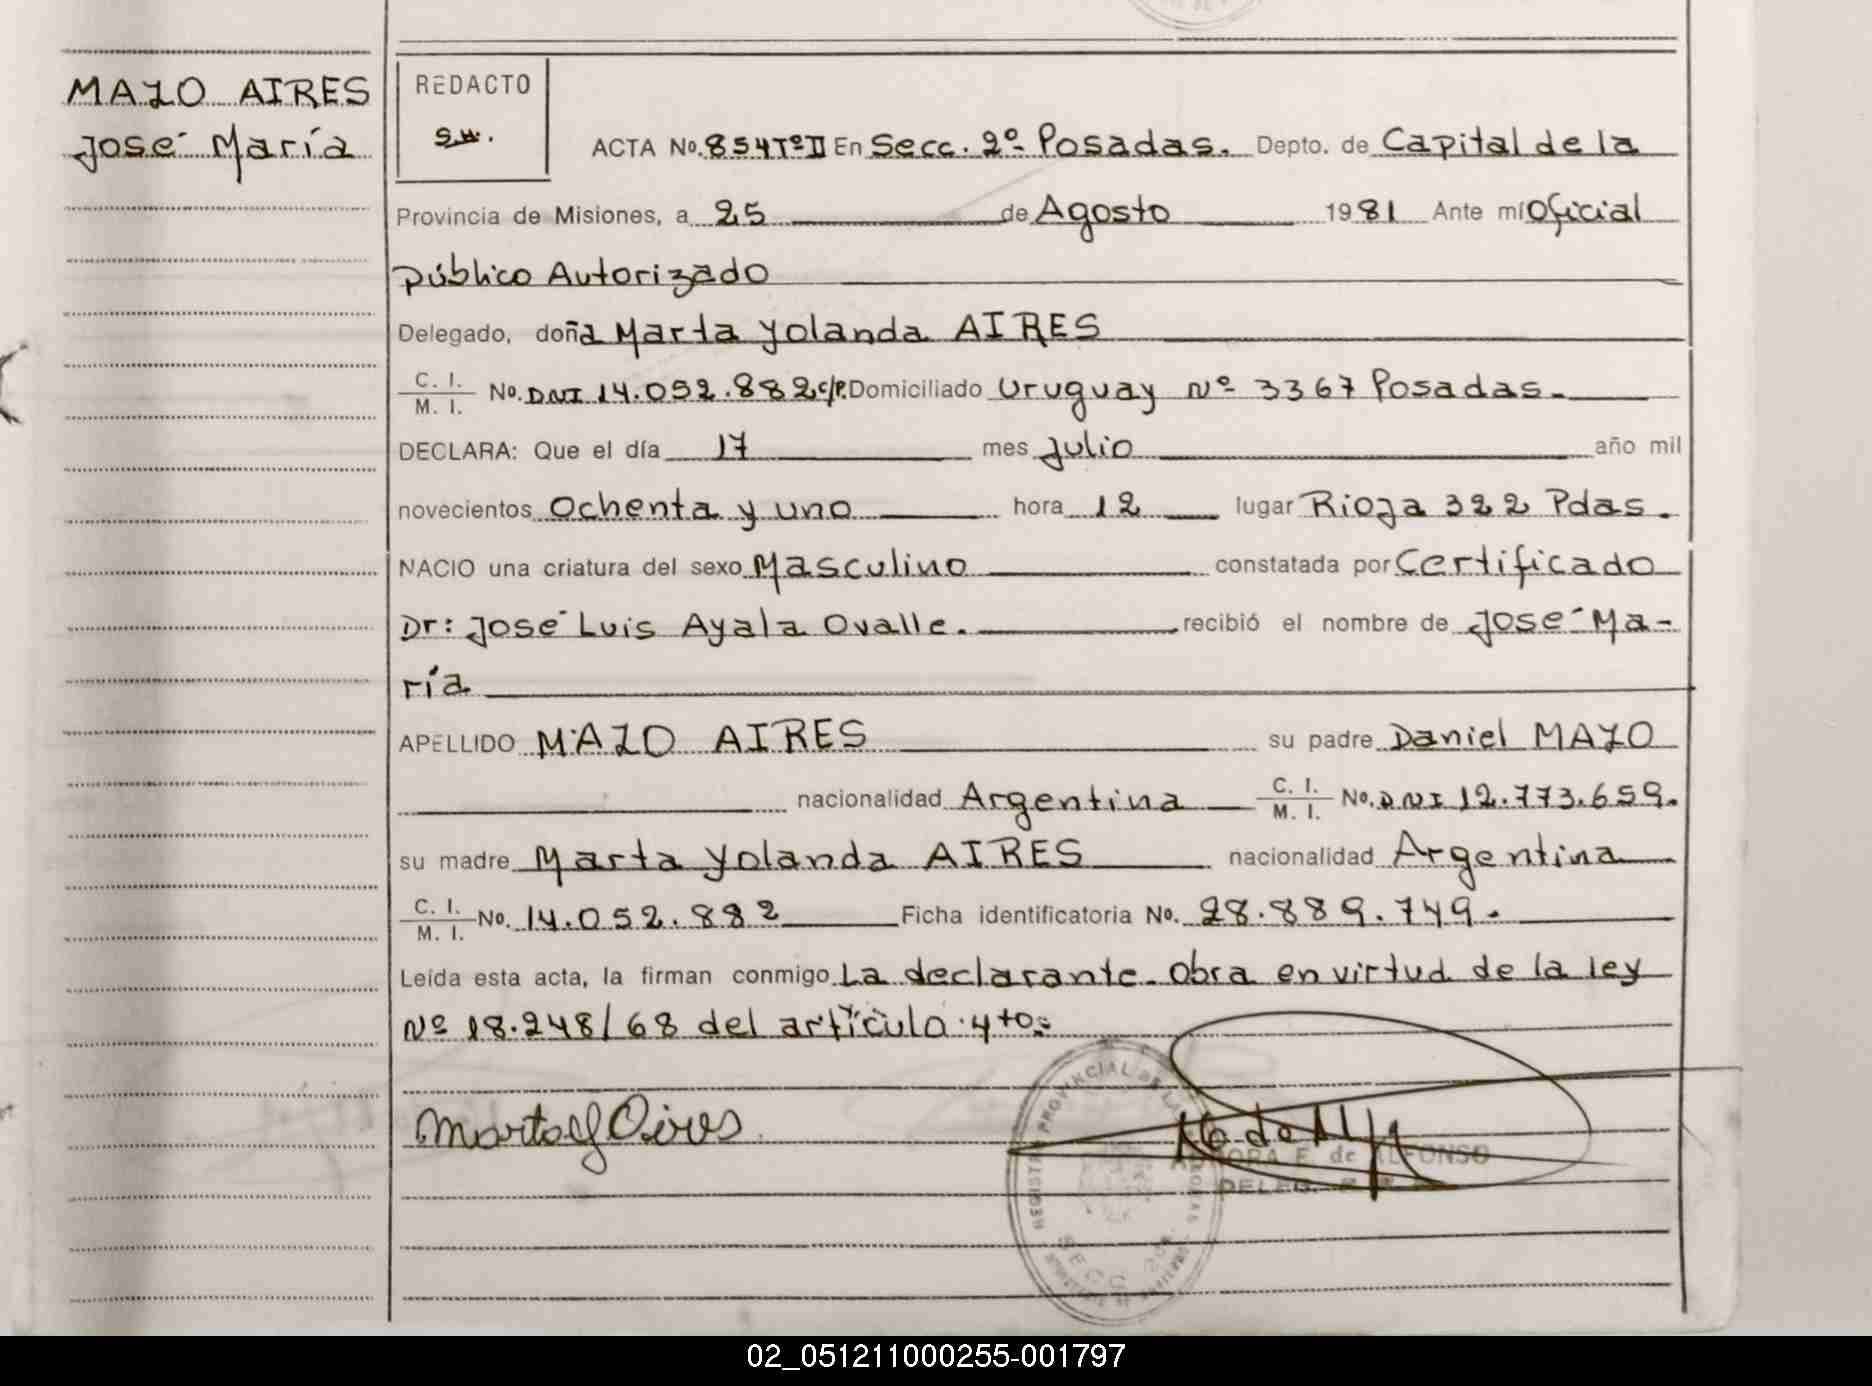 MAYO AIRES
José María
REDACTO
S.W.
ACTA No. 854 Tº II En Secc. 2º Posadas. Depto. de Capital de la
Provincia de Misiones, a 25 de Agosto 1981 Ante mí Oficial
Público Autorizado
Delegado, doña Marta Yolanda AIRES
C. I. / M. I. No. DNI 14.052.882 c/P. Domiciliado Uruguay Nº 3367 Posadas.
DECLARA: Que el día 17 mes Julio año mil
novecientos Ochenta y uno hora 12 lugar Rioja 322 Pdas.
NACIO una criatura del sexo Masculino constatada por Certificado
Dr: José Luis Ayala Ovalle. recibió el nombre de José Ma-
ría
APELLIDO MAYO AIRES su padre Daniel MAYO
nacionalidad Argentina C. I. / M. I. No. DNI 12.773.659.
su madre Marta Yolanda AIRES nacionalidad Argentina
C. I. / M. I. No. 14.052.882 Ficha identificatoria No. 28.889.749.
Leída esta acta, la firman conmigo La declarante. Obra en virtud de la ley
Nº 18.248/68 del artículo 4to.
Marta Y Aires
AURORA E. de ALFONSO
DELEG.
REGISTRO PROVINCIAL DE LAS PERSONAS
SECC. 2da.
02_051211000255-001797